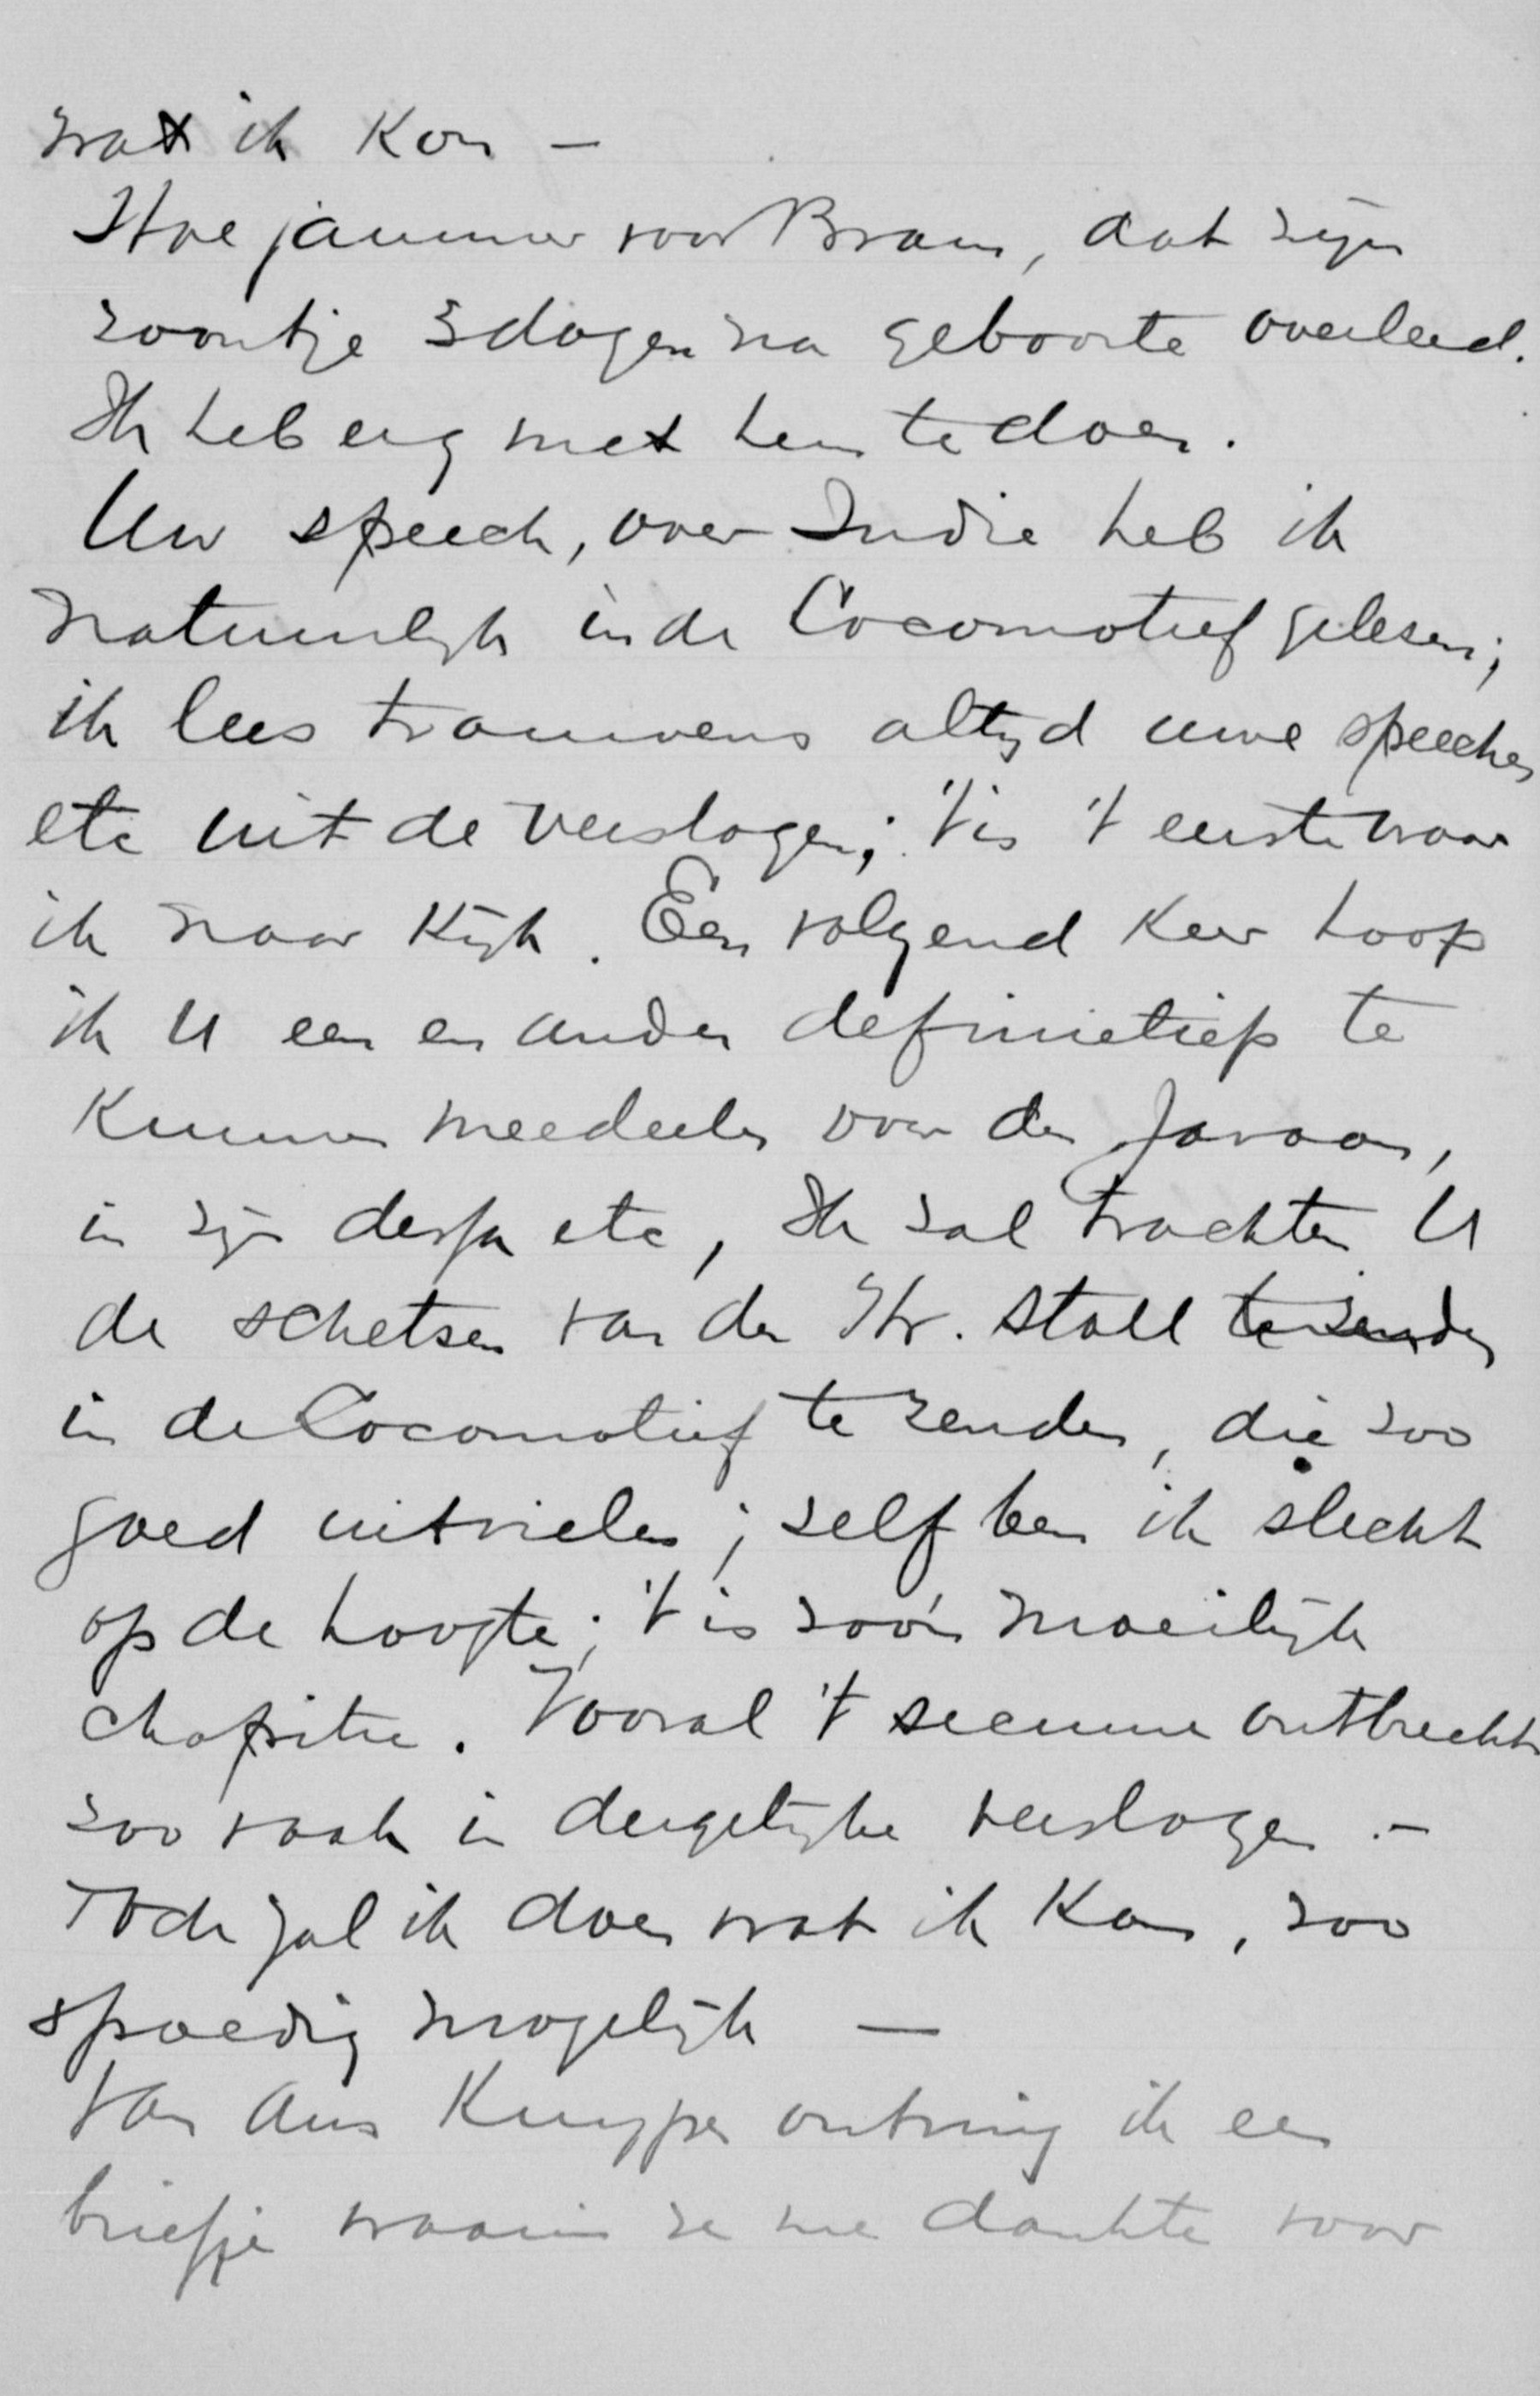 wat ik kon –
Hoe jammer voor Bram, dat zijn
zoontje 3 dagen na geboorte overleed.
Ik heb erg met hem te doen.
Uw speech, over Indie heb ik
natuurlijk in de Locomotief gelezen;
ik lees trouwens altijd uwe speeches
etc uit de verslagen; 't is 't eerste waar
ik naar kijk. Een volgend keer hoop
ik U een en ander definietief te
kunnen meedeelen over den Javaan,
in zijn dessa etc, Ik zal trachten U
de schetsen van den Hr. Stoll te zenden
in de Locomotief te zenden, die zoo
goed uitvielen; zelf ben ik slecht
op de hoogte; 't is zoo'n moeilijk
chapitre. Vooral 't ontbreekt
zoo vaak in dergelijke verslagen. –
Toch zal ik doen wat ik kan, zoo
spoedig mogelijk —
Van Ans Kuyper ontving ik een
briefje waarin ze me dankte voor